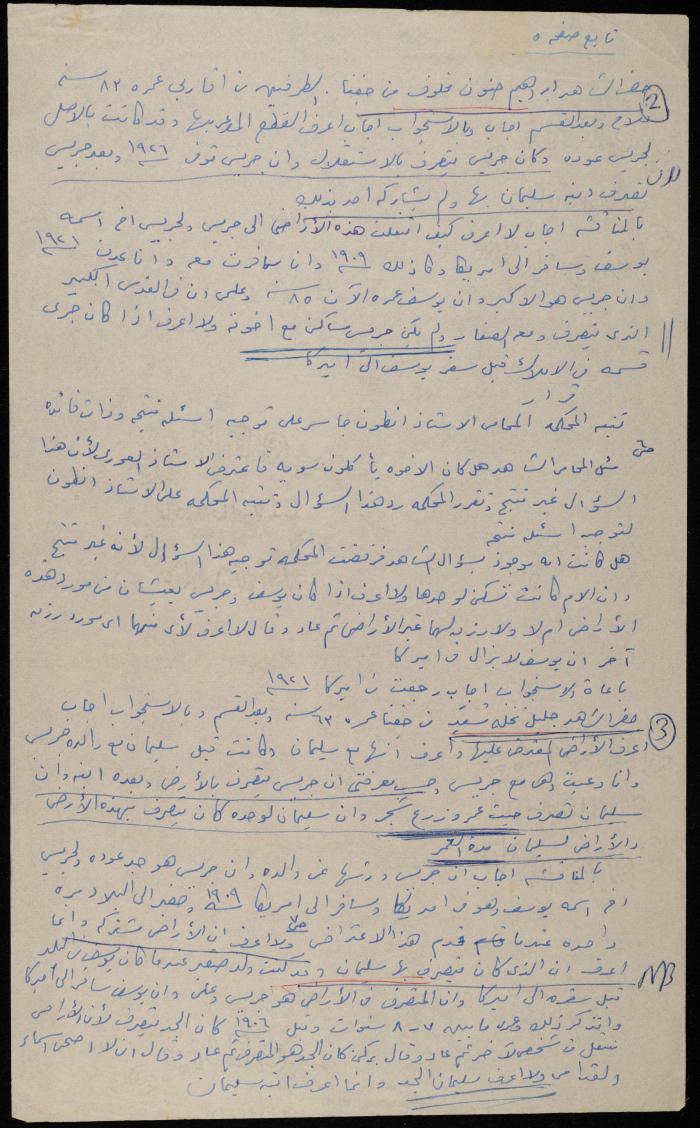 تابع صفحه ٥
حضر الشاهد ابراهيم حنون مخلوف من جفنا . الطرفين من اقاربي عمره ٨٢ سنه
2
فلاح وبعد القسم اجاب وبالاستجواب اجاب اعرف القطع المدعى بها وقد كانت بالاصل
لجريس عوده وكان جريس يتصرف بالاستقلال وان جريس توفى ١٩٢٦ وبعد جريس
تصرف ابنه سليمان بها ولم يشاركه احد بذلك
بالمناقشه اجاب لا اعرف كيف انتقلت هذه الأراضي الى جريس ولجريس اخ اسمه
يوسف وسافر الى امريكا وكان ذلك ١٩٠٩ وان سافرت معه وانا عدت ١٩٢١
وان جريس هو الاكبر وان يوسف عمره الآن ٨٥ سنه وعلمي ان الكبير
الذي يتصرف ومعه الصغار ولم يكن جريس ساكن مع اخوته ولا اعرف اذا كان جرى
قسمه في الاملاك قبل سفر يوسف الى اميركا
قرار
تنبه المحكمة المحامي الاستاذ انطون جاسر على توجيه اسئله منتجه وذات فائده
سئل المحامي الشاهد هل كان الاخوه يأكلون سويه فاعترض الاستاذ الخوري لأن هذا
السؤال غير منتج وتقرر المحكمه رد هذا السؤال وتنبه المحكمه على الاستاذ انطون
لتوجيه اسئله منتجه
هل كانت امه موجوده بسؤال الشاهد فرفضت المحكمه توجيه هذا السؤال لأنه غير منتج
وان الام كانت تسكن لوحدها ولا اعرف اذا كان يوسف وجريس يعيشان من مورد هذه
الأراضي ام لا ولا رزق لهما غير الأراضي ثم عاد وقال لا اعرف لأي منهما اي مورد رزق
آخر ان يوسف لا يزال في اميركا
باعادة الاستجواب اجاب رجعت من اميركا ١٩٢١
3
حضر الشاهد جليل نخله سعيد من جفنا عمره ٦٣ سنه وبعد القسم وبالاستجواب اجاب
اعرف الأراضي المعترض عليها واعرف انها مع سليمان وكانت قبل سليمان مع والده جريس
وانا وعيت وهي مع جريس وحسب معرفتي ان جريس يتصرف بالأرض وبعده ابنه وان
سليمان تصرف حيث عمر وزرع شجر وان سليمان لوحده كان يتصرف بهذه الأرض
والأراضي لسليمان مدة العمر
بالمناقشه اجاب ان جريس ورثها عن والده وان جريس هو جد عوده ولجريس
اخ اسمه يوسف وهو في امريكا وسافر الى امريكا ١٩٠٩ وحضر الى البلاد مره
واحده عندما قدم هذا الاعتراض ولا اعرف ان الأراضي مشتركه وانما
اعرف ان الذي كان يتصرف بها سليمان وقد كنت ولد صغير عندما كان يوسف في البلد
NB
قبل سفره الى اميركا وان المتصرف في الأراضي هو جريس وعلمي وان يوسف سافر الى أميركا
واتذكر ذلك وعمري ما بين ٧-٨ سنوات وقبل ١٩٠٦ كان الجد يتصرف لأن الأراضي
تنتقل من شخص لآخر ثم عاد وقال يمكن كان الجد هو المتصرف ثم عاد وقال ان لا احصي اسماء
ولا اعرف سليمان الجد وانما اعرف ابنه سليمان